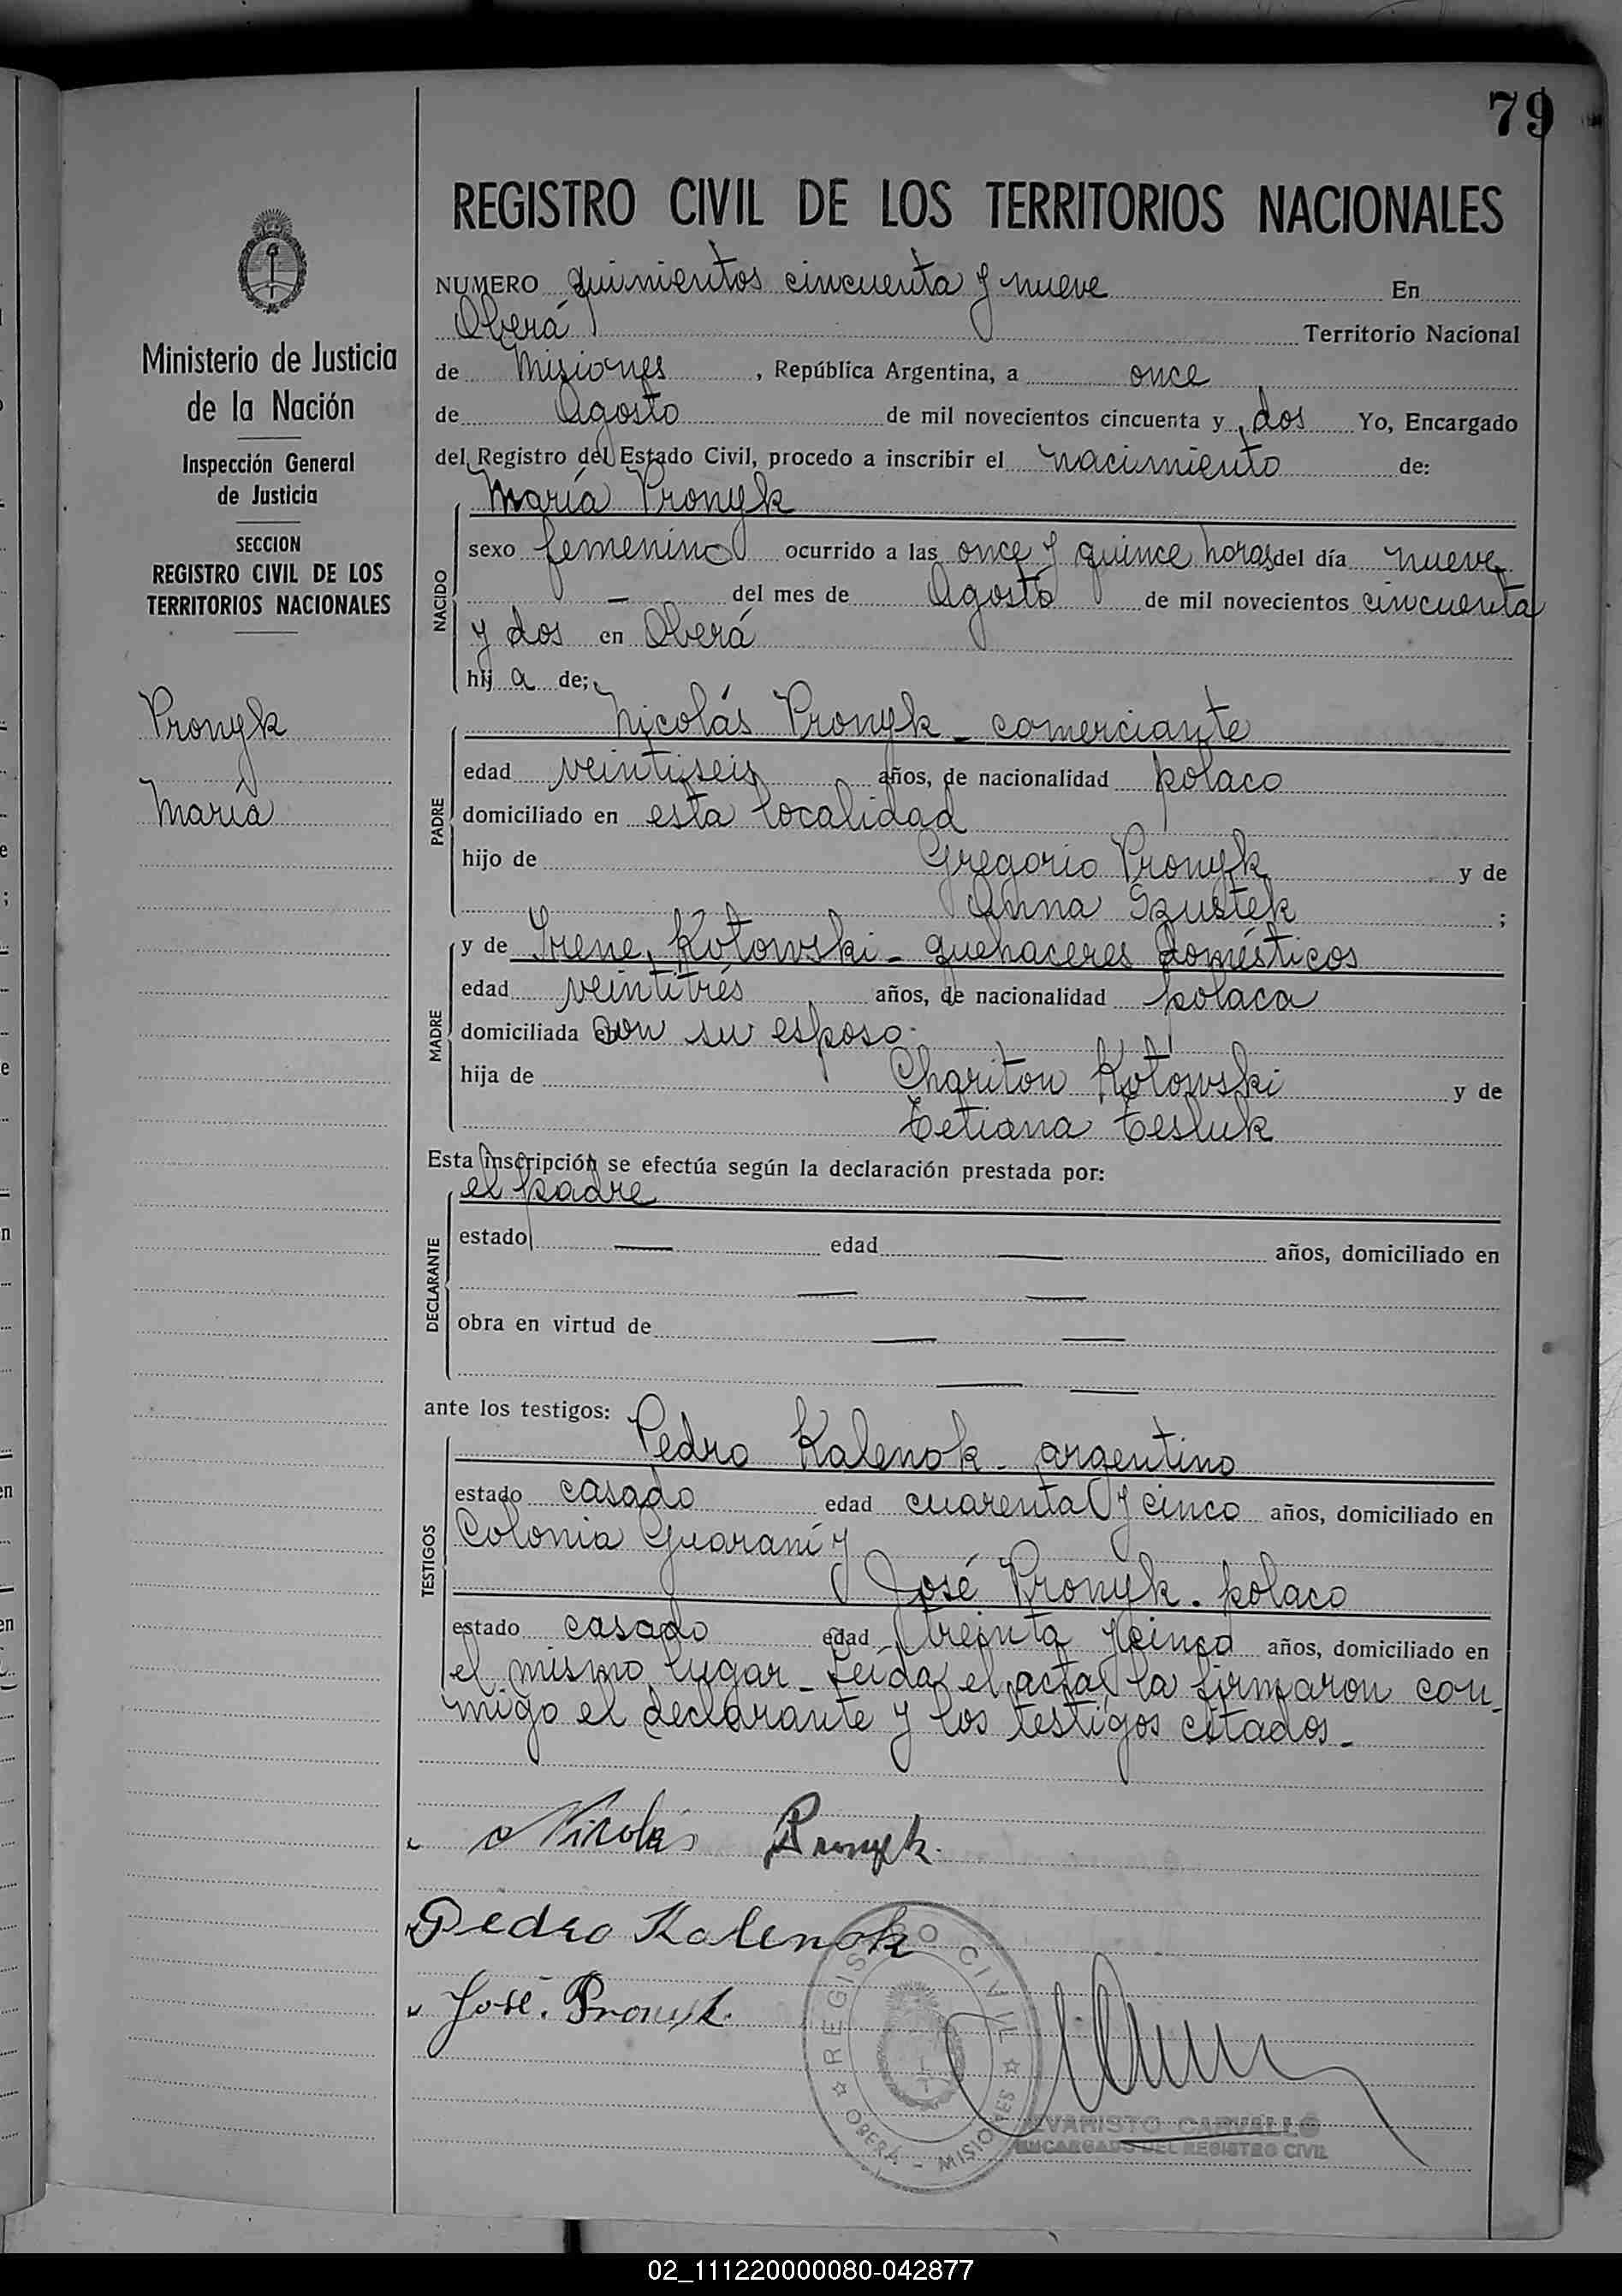 79
REGISTRO CIVIL DE LOS TERRITORIOS NACIONALES
Ministerio de Justicia
de la Nación
Inspección General
de Justicia
SECCION
REGISTRO CIVIL DE LOS
TERRITORIOS NACIONALES
Pronyk
María
NUMERO quinientos cincuenta y nueve En
Oberá Territorio Nacional
de Misiones, República Argentina, a once
de Agosto de mil novecientos cincuenta y dos Yo, Encargado
del Registro del Estado Civil, procedo a inscribir el nacimiento de:
María Pronyk
NACIDO
sexo femenino ocurrido a las once y quince horas del día nueve
— del mes de Agosto de mil novecientos cincuenta
y dos en Oberá
hij a de;
Nicolás Pronyk - comerciante
PADRE
edad veintiseis años, de nacionalidad polaco
domiciliado en esta localidad
hijo de Gregorio Pronyk y de
Anna Szustek ;
y de Irene Kotowski - quehaceres domésticos
MADRE
edad veintitrés años, de nacionalidad polaca
domiciliada con su esposo.
hija de Chariton Kotowski y de
Tetiana Tesluk
Esta inscripción se efectúa según la declaración prestada por:
el padre
DECLARANTE
estado — edad — años, domiciliado en
— —
obra en virtud de — —
— —
ante los testigos:
Pedro Kalenok - argentino
TESTIGOS
estado casado edad cuarenta y cinco años, domiciliado en
Colonia Guaraní y
José Pronyk - polaco
estado casado edad treinta y cinco años, domiciliado en
el mismo lugar - Leída el acta la firmaron con-
migo el declarante y los testigos citados -
Nicolás Pronyk.
Pedro Kalenok
José. Pronyk.
REGISTRO CIVIL
OBERÁ - MISIONES
EVARISTO CARVALLO
ENCARGADO DEL REGISTRO CIVIL
02_111220000080-042877